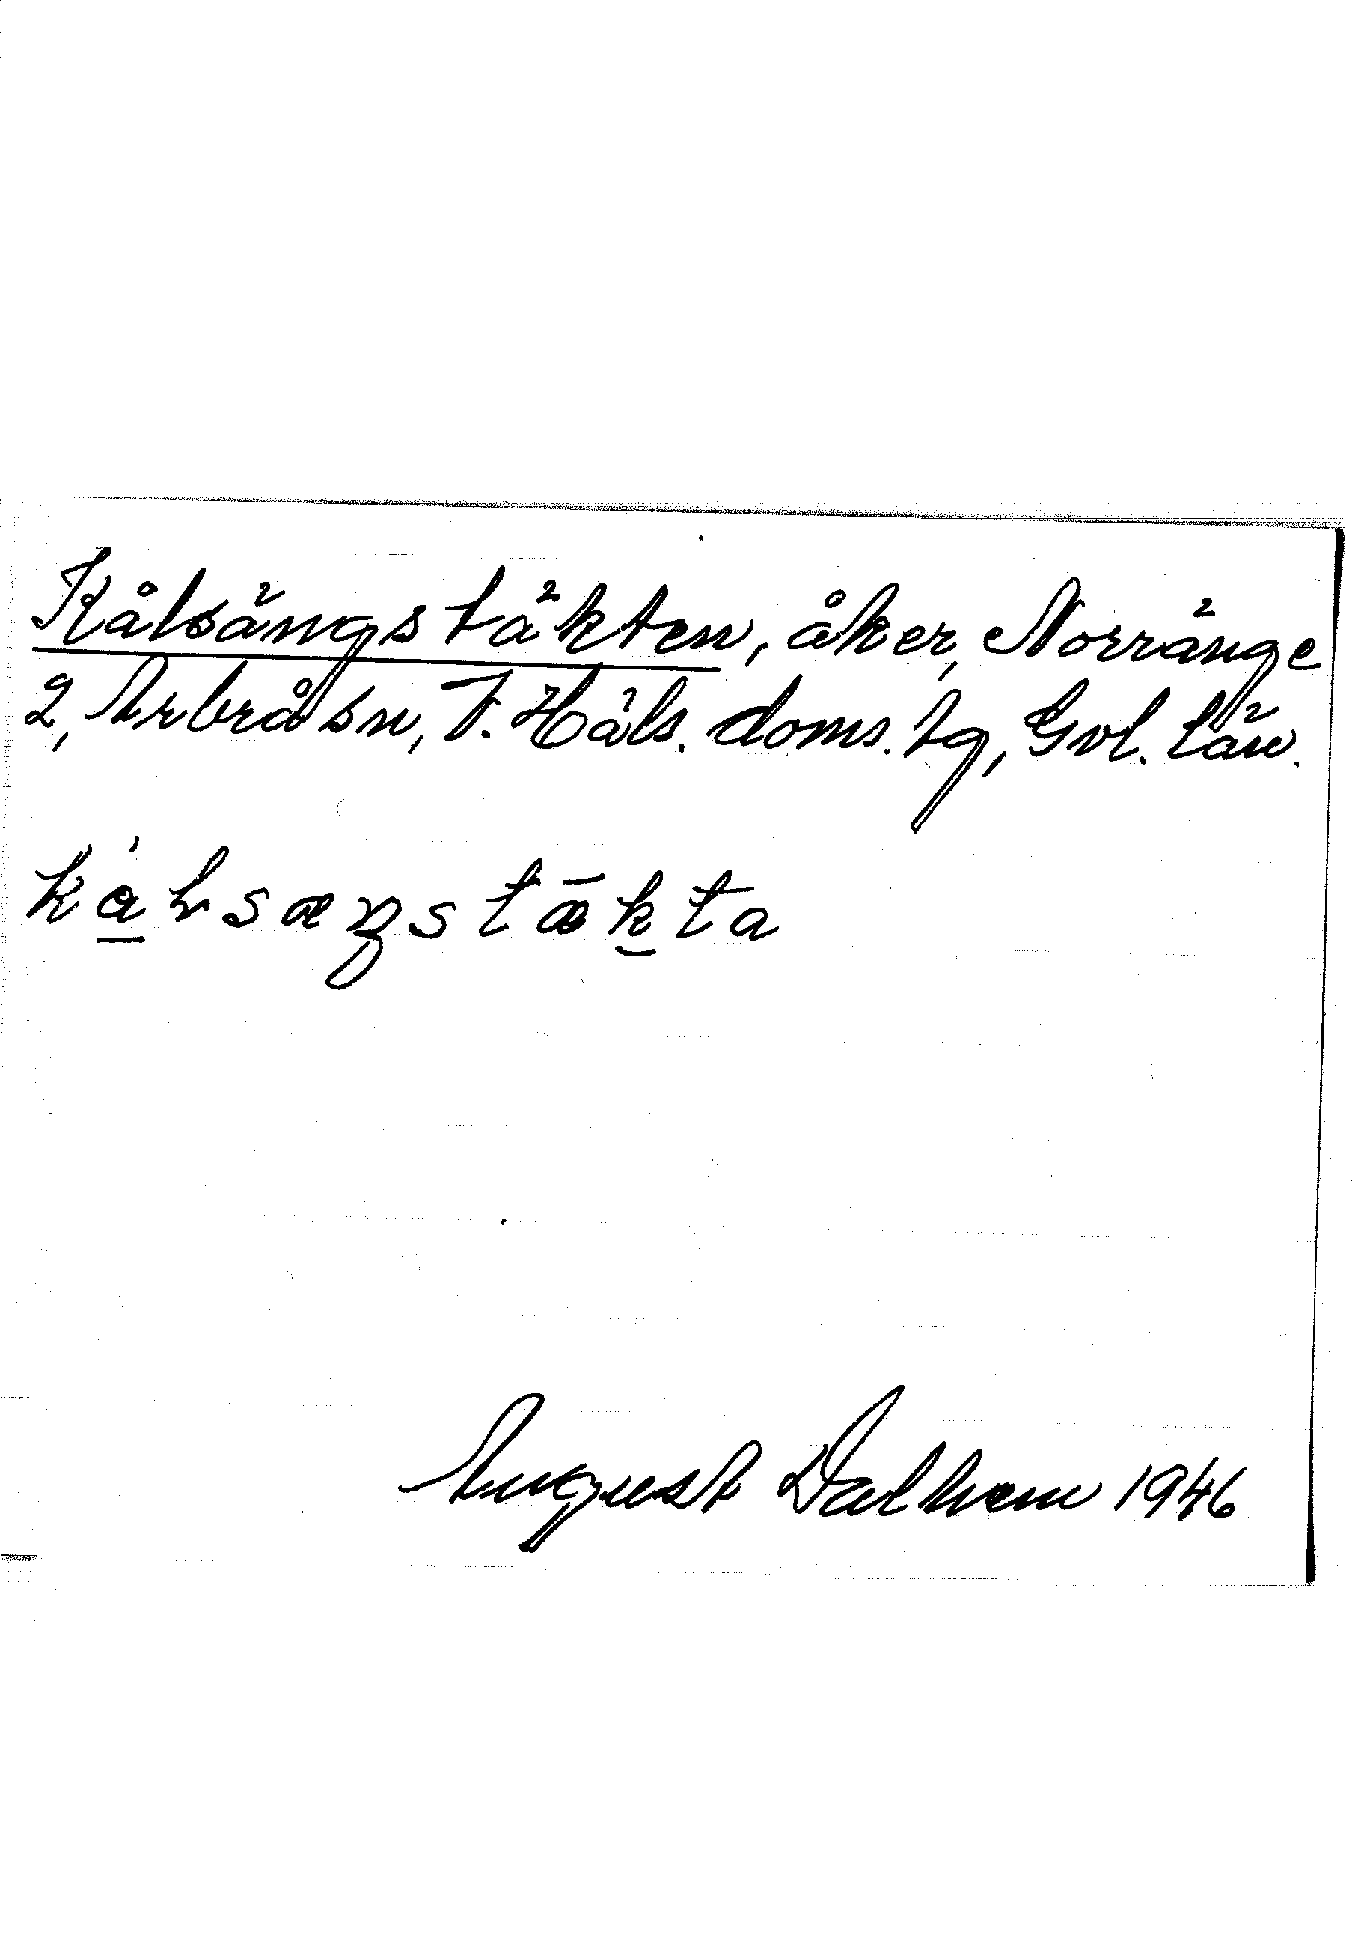 Kålsängstäkten, åker, Norränge
2, Arbrå sn, V. Häls. doms. tg, Gvl. län.
kålsæŋstækta
August Dalhem 1946